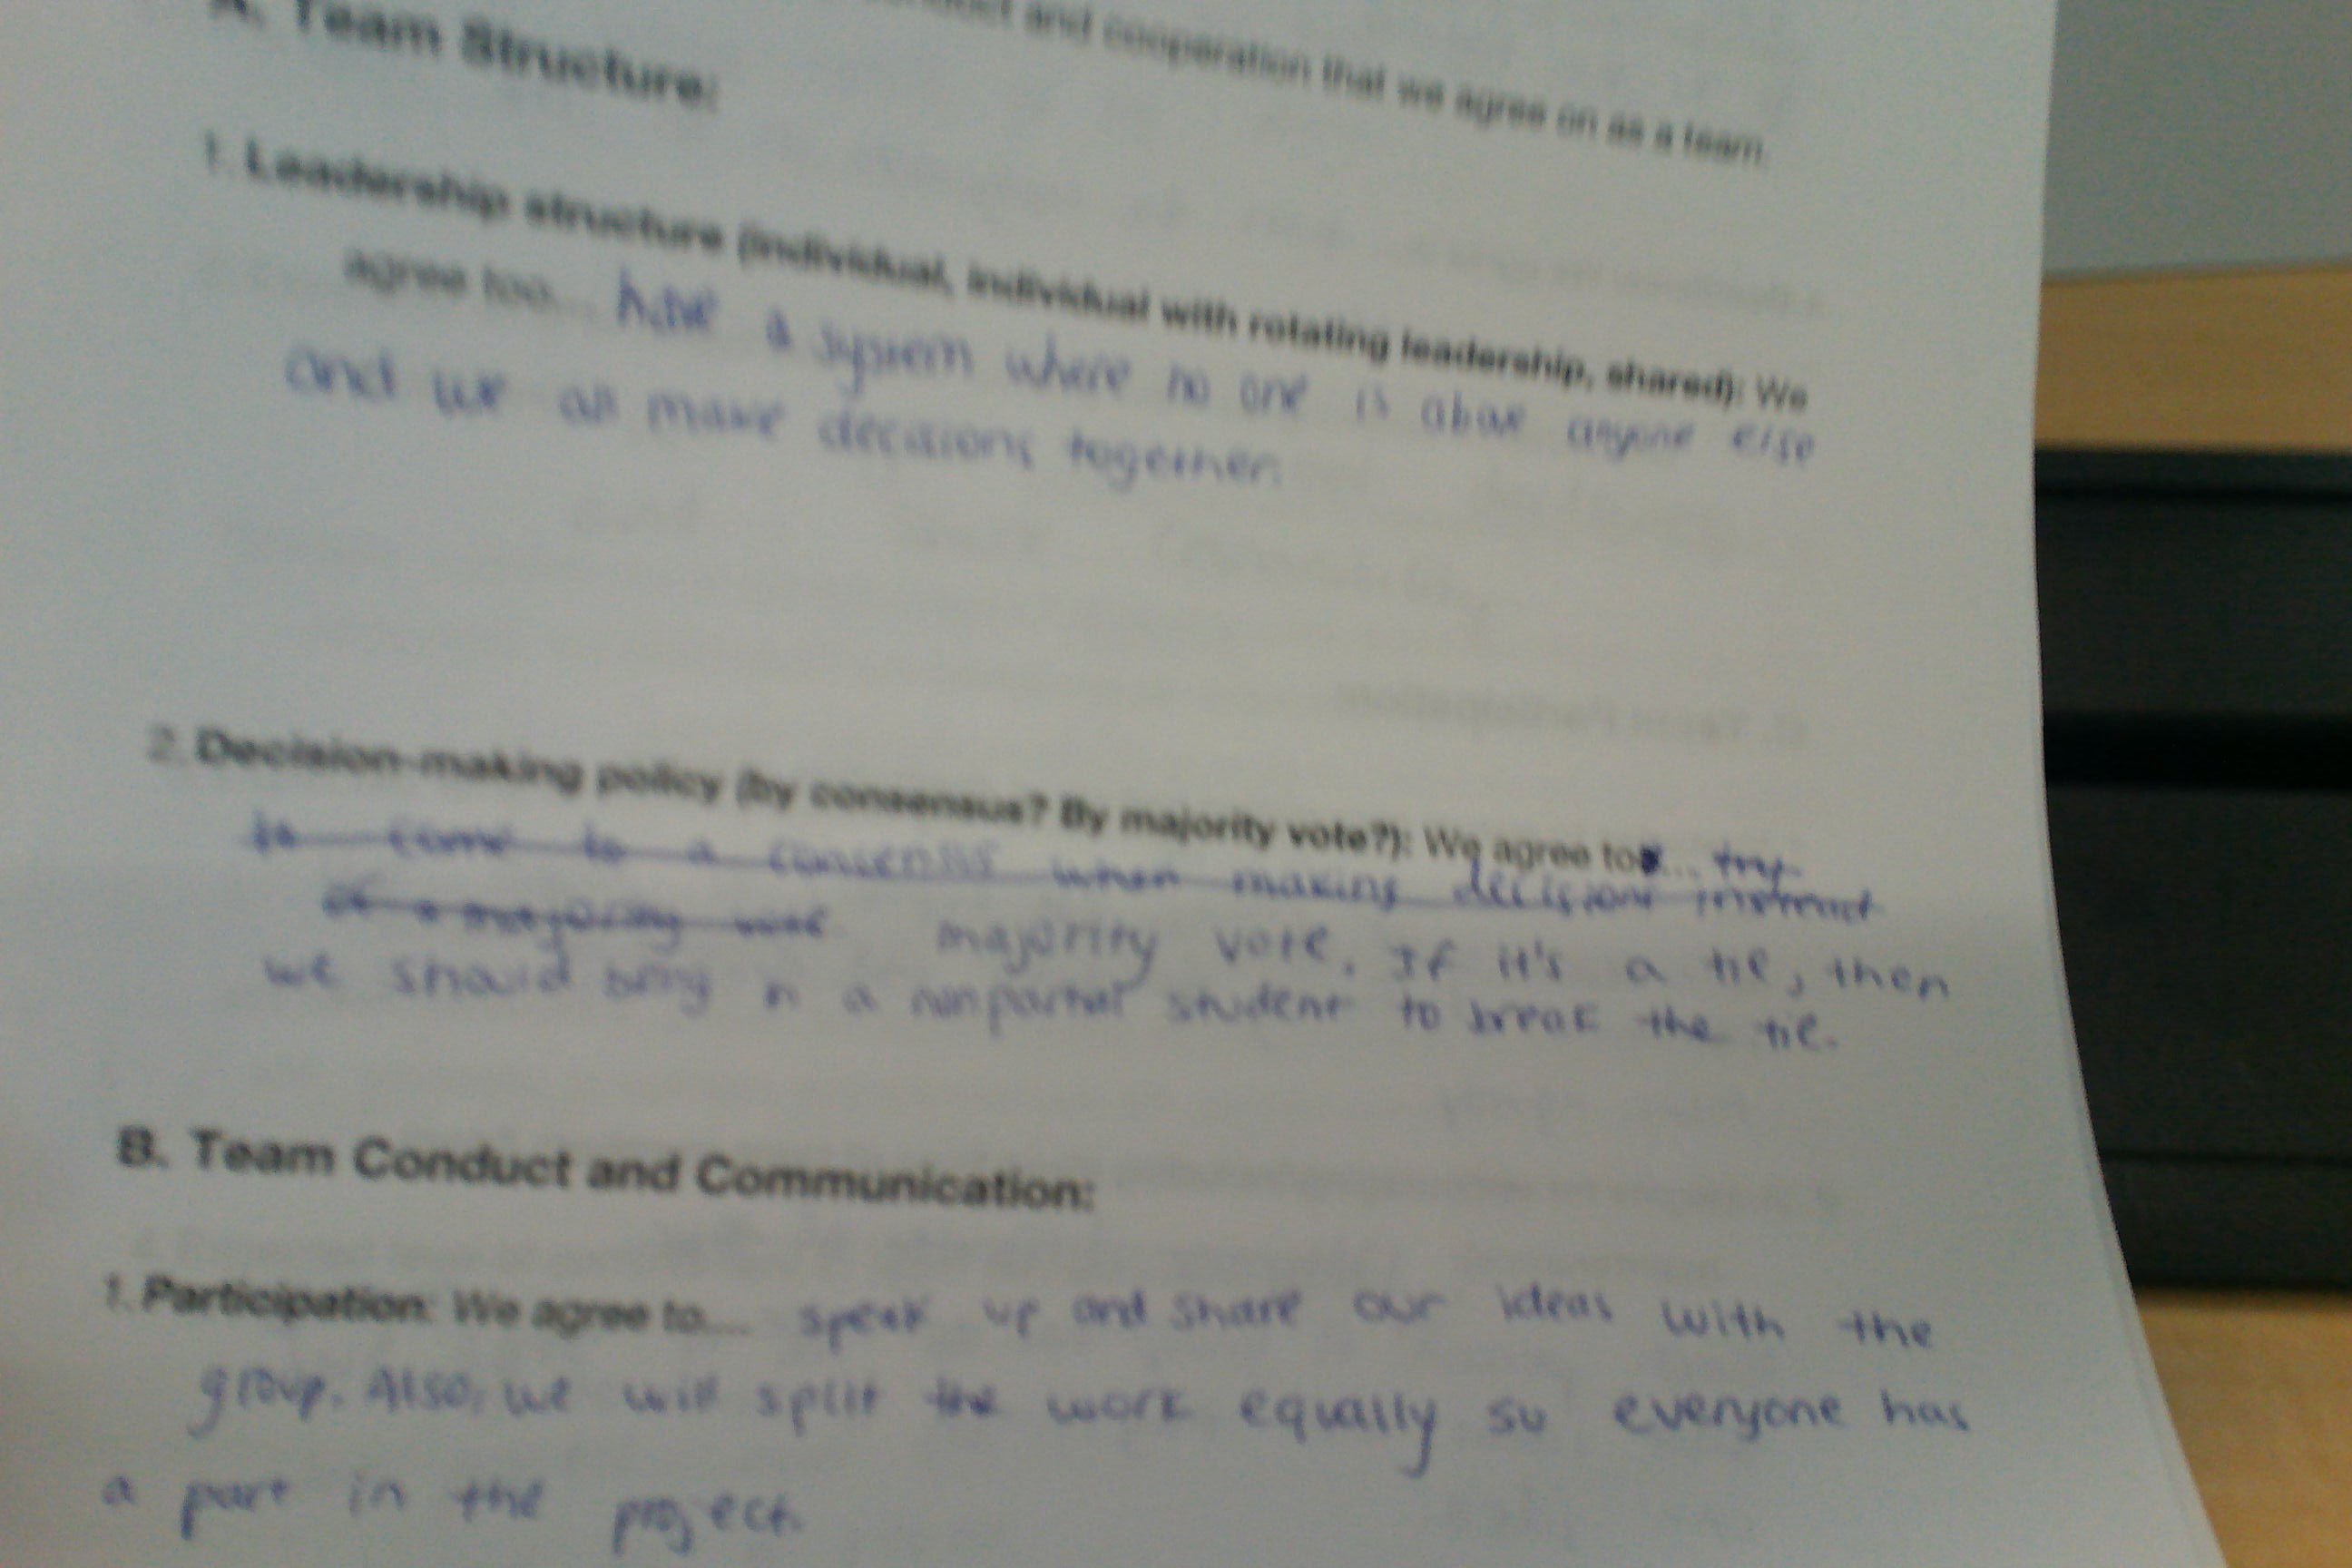 conduct and cooperation that we agree on as a team.
A. Team Structure:
1. Leadership structure (individual, individual with rotating leadership, shared): We
agree too... have a system where no one is above anyone else
and we all make decisions together.
2. Decision-making policy (by consensus? By majority vote?): We agree to... try
to come to a consensus when making decisions instead
of a majority vote majority vote. If it's a tie, then
we should bring in a nonpartial student to break the tie.
B. Team Conduct and Communication:
1. Participation: We agree to... speak up and share our ideas with the
group. Also, we will split the work equally so everyone has
a part in the project.